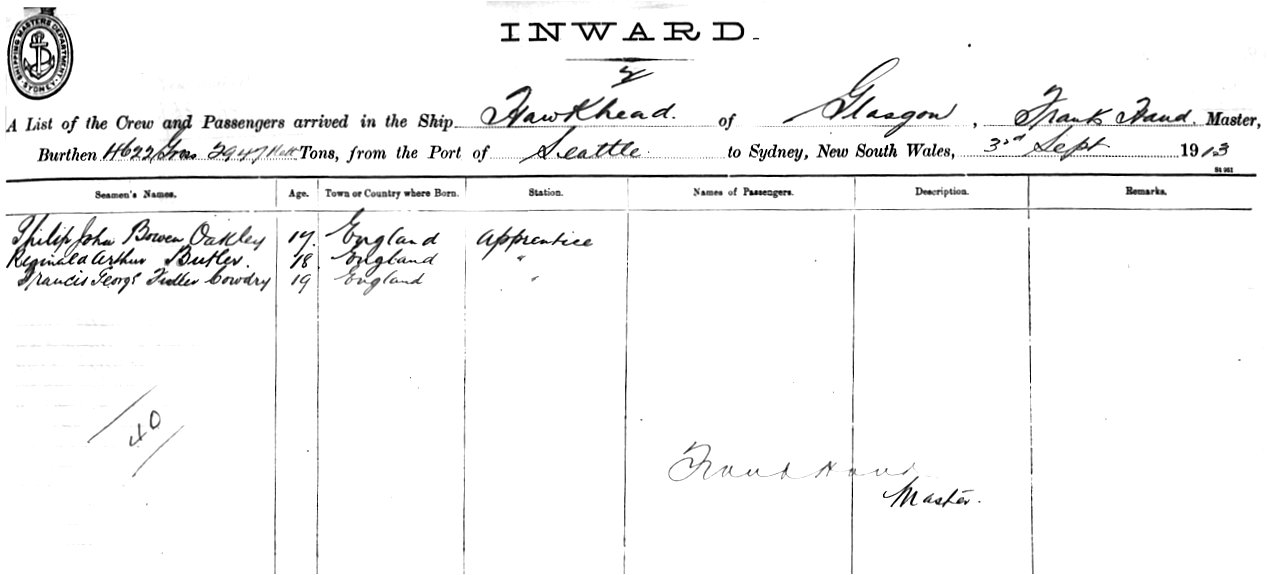 SHIPPING MASTERS DEPARTMENT SYDNEY
INWARD.
2
A List of the Crew and Passengers arrived in the Ship Hawkhead. of Glasgow, Frank Hand Master,
Burthen 4622 Gross 2947 Nett Tons, from the Port of Seattle to Sydney, New South Wales, 3rd Sept 1913
St 961
Seamen's Names. Age. Town or Country where Born. Station. Names of Passengers. Description. Remarks.
Philip John Bowen Oakley 17. England Apprentice
Reginald Arthur Butler. 18 England "
Francis George Cowdry 19 England "
40
Frank Hand
Master.